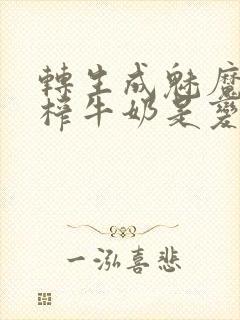 轉生成魅魔
榨牛奶是變
一泓喜悲